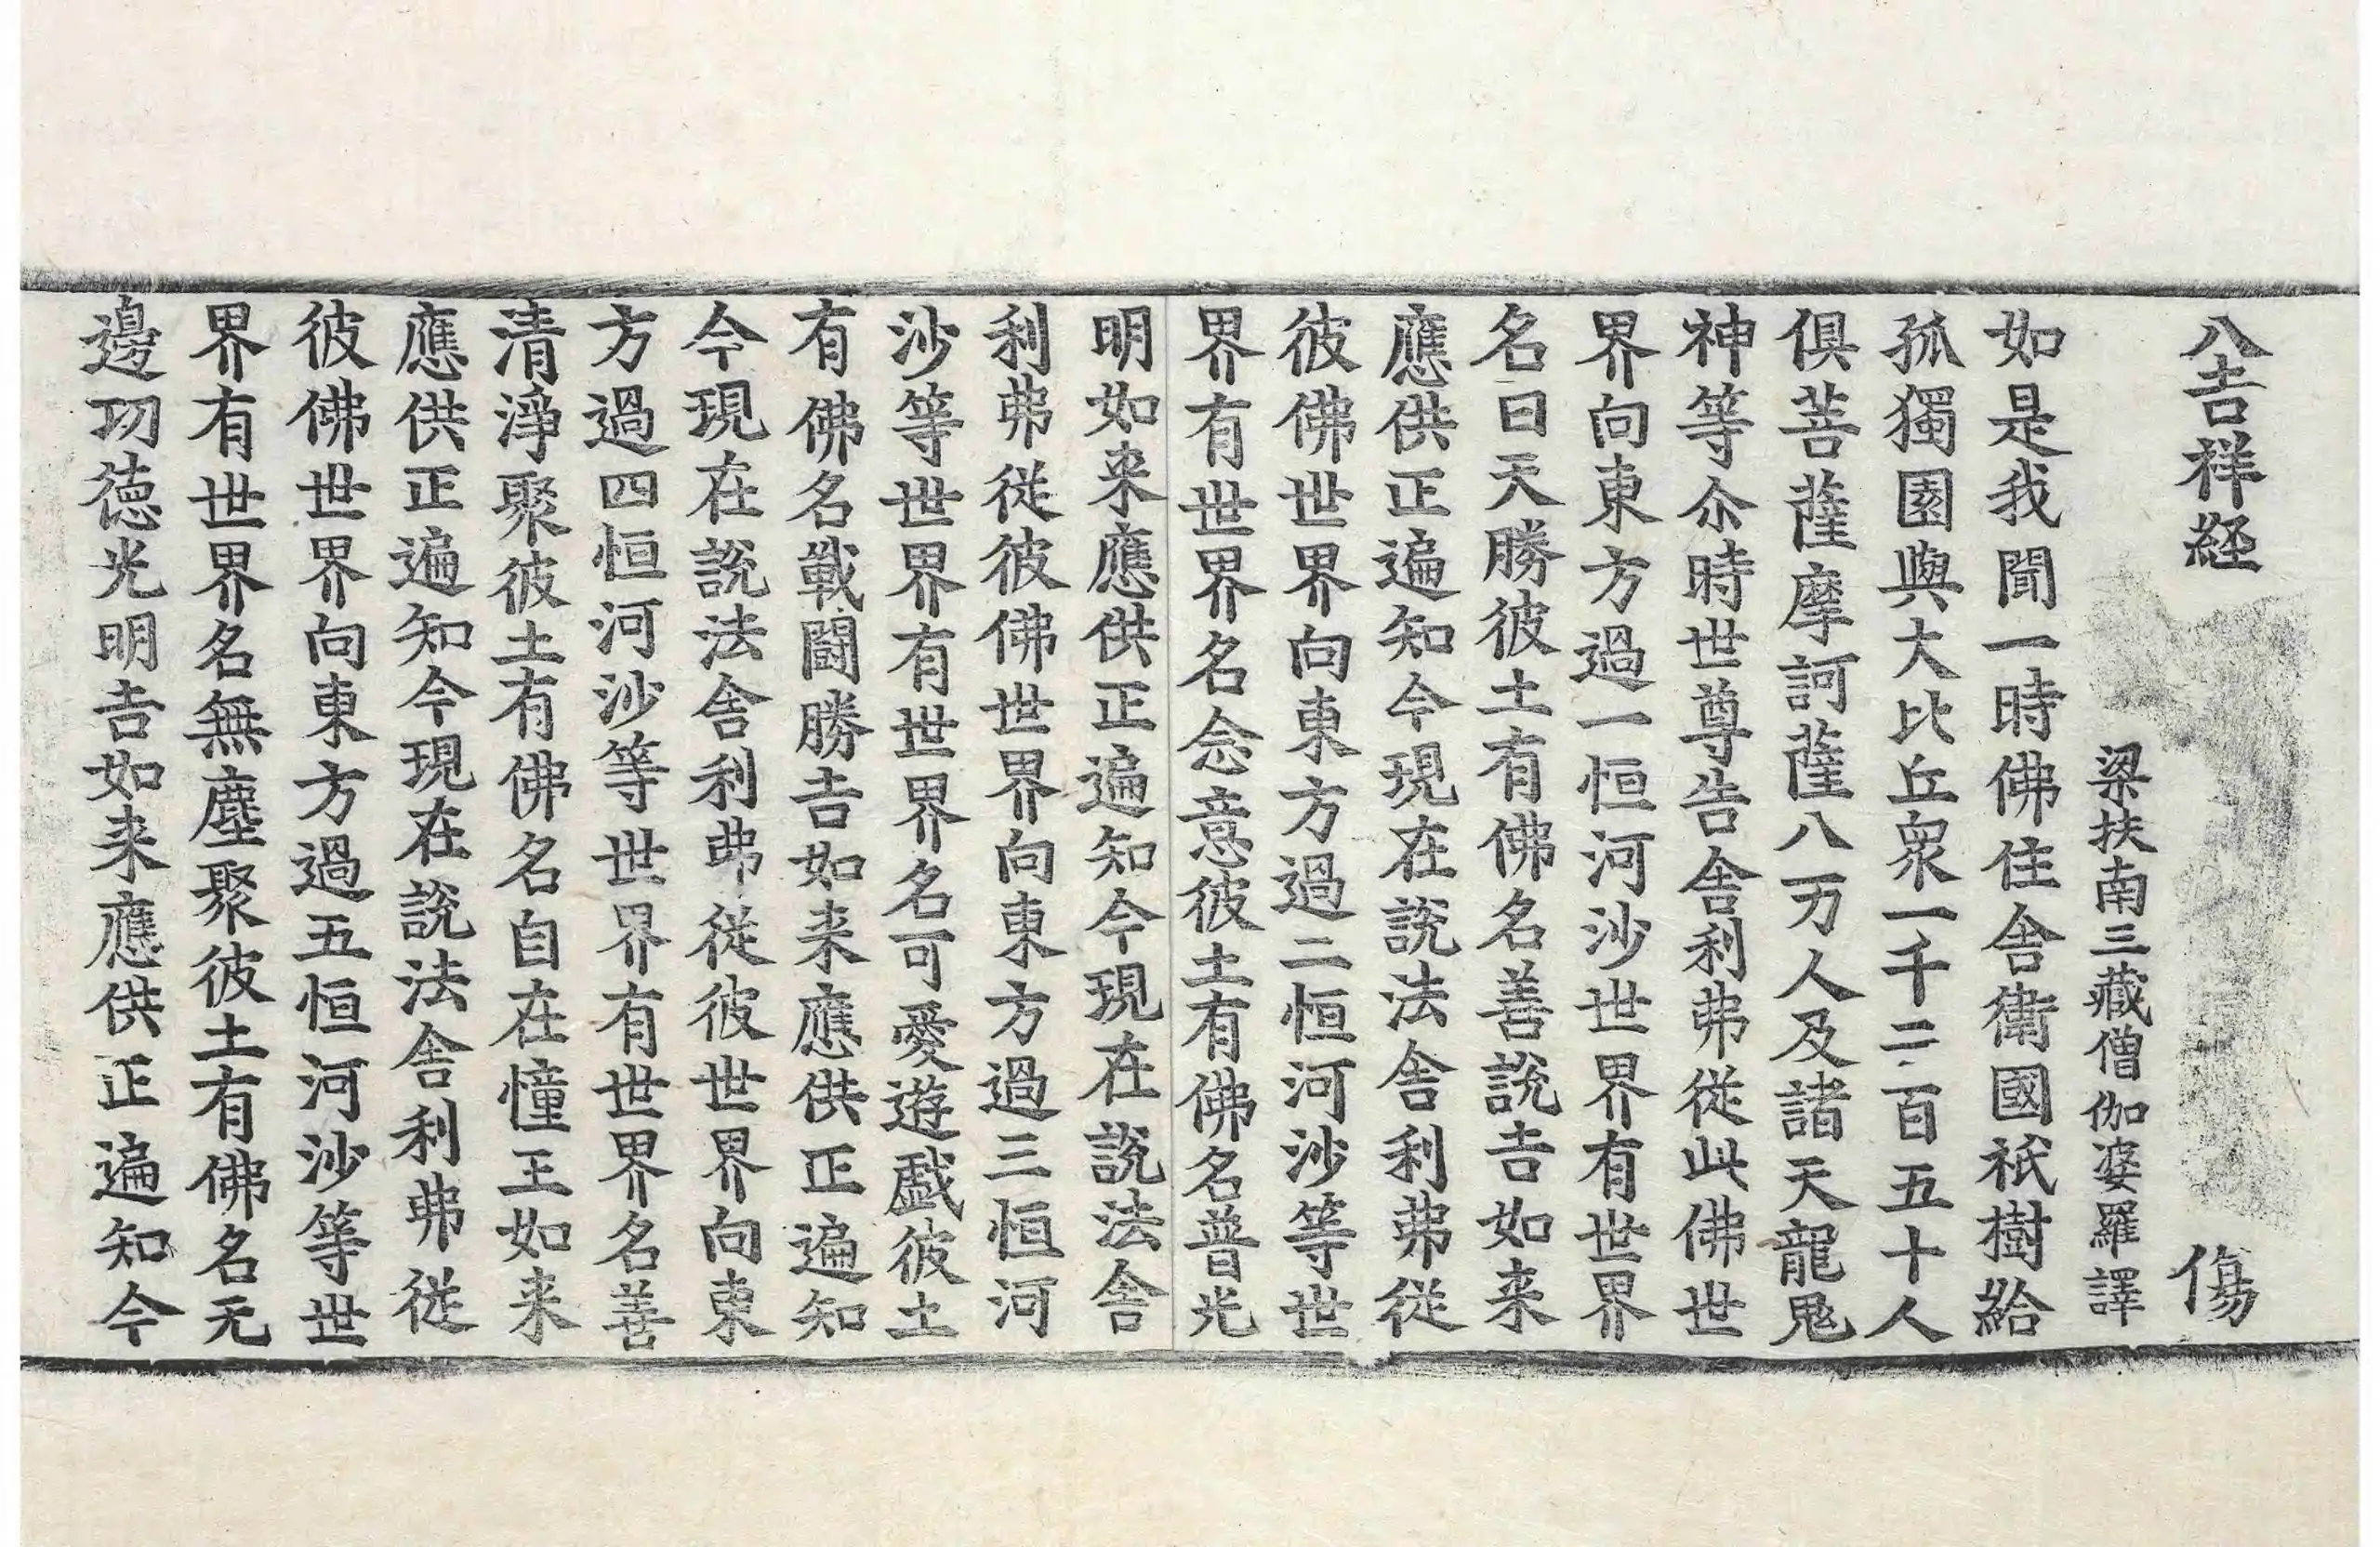 八吉祥経 傷
梁扶南三藏僧伽婆羅譯
如是我聞一時佛住舍衛國祇樹給
孤獨園與大比丘衆一千二百五十人
俱菩薩摩訶薩八万人及諸天龍鬼
神等尒時世尊告舍利弗從此佛世
界向東方過一恒河沙世界有世界
名曰天勝彼土有佛名善說吉如来
應供正遍知今現在說法舍利弗從
彼佛世界向東方過二恒河沙等世
界有世界名念意彼土有佛名普光
明如来應供正遍知今現在說法舍
利弗從彼佛世界向東方過三恒河
沙等世界有世界名可愛遊戱彼土
有佛名戰闘勝吉如来應供正遍知
今現在說法舍利弗從彼世界向東
方過四恒河沙等世界有世界名善
清淨聚彼土有佛名自在憧王如来
應供正遍知今現在說法舍利弗從
彼佛世界向東方過五恒河沙等世
界有世界名無塵聚彼土有佛名无
邊功德光明吉如来應供正遍知今